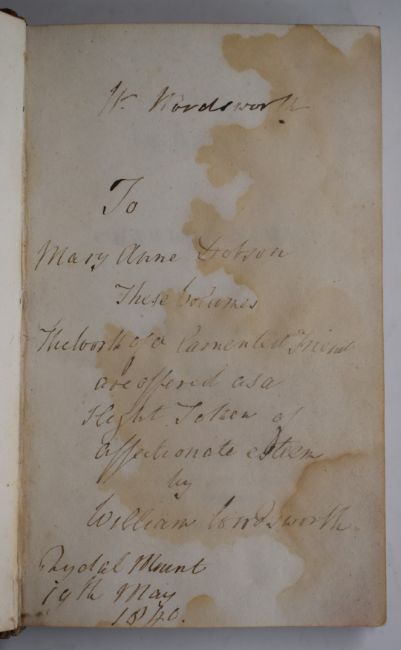 W. Wordsworth
To
Mary Anne Dobson
These Volumes
The work of a lamented Friend
are offered as a
slight Token of
affectionate esteem
by
William Wordsworth
Rydal Mount
19th May
1840.